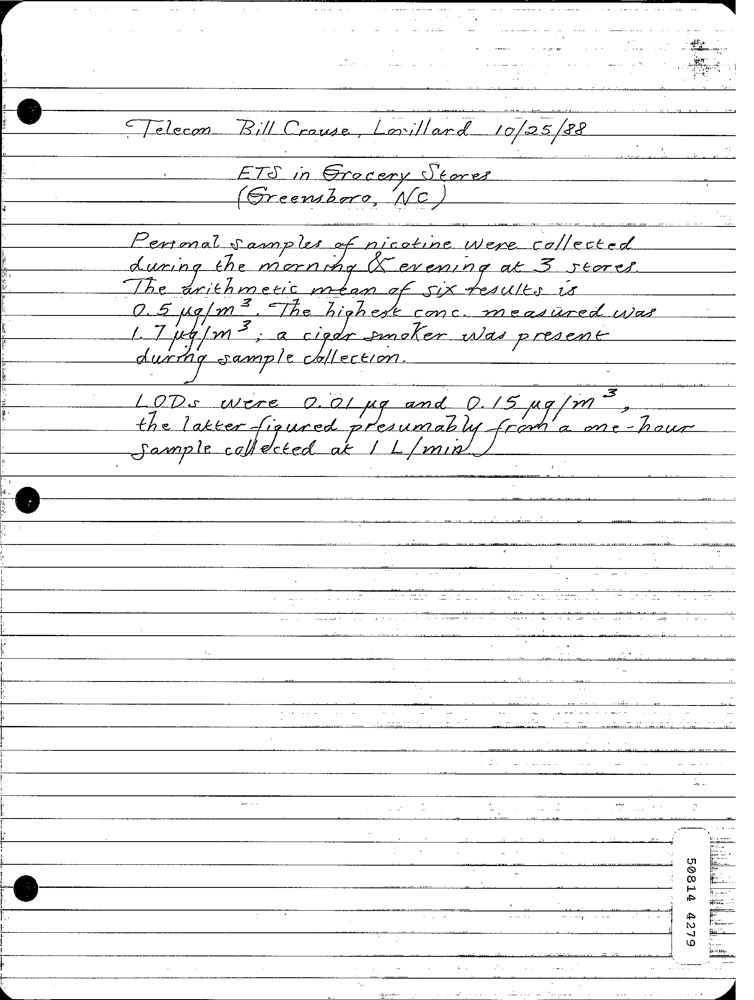 Telecon Bill Crouse, Lorillard 10/25/88
ETS in Grocery Stores
(Greensboro, NC)
Personal samples of nicotine were collected
during the morning & evening at 3 stores.
The arithmetic mean of six results is
0.5 µg/m³. The highest conc. measured was
1.7 µg/m³; a cigar smoker was present
during sample collection.
LODs were 0.01 µg and 0.15 µg/m³,
the latter figured presumably from a one-hour
sample collected at 1 L/min.
50814 4279